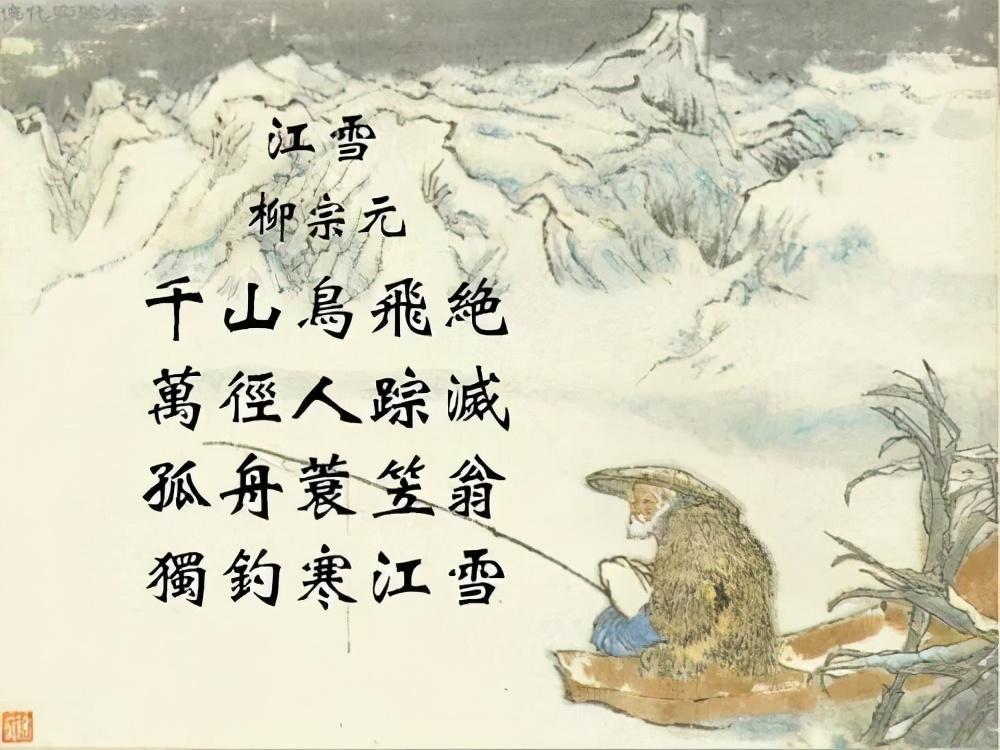 江雪
柳宗元
千山鳥飛絕
萬徑人踪滅
孤舟蓑笠翁
獨釣寒江雪